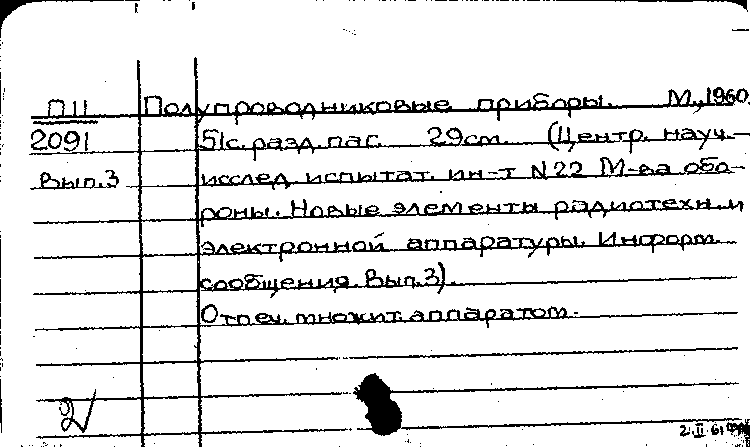 П11 Полупроводниковые приборы. М., 1960.
2091 51с. разд. паг. 29см. (Центр. науч.-
Вып.3 исслед. испытат. ин-т N22 М-ва обо-
роны. Новые элементы радиотехн. и
электронной аппаратуры. Информ.
сообщения. Вып.3).
Отпеч. множит. аппаратом.
2.II.61